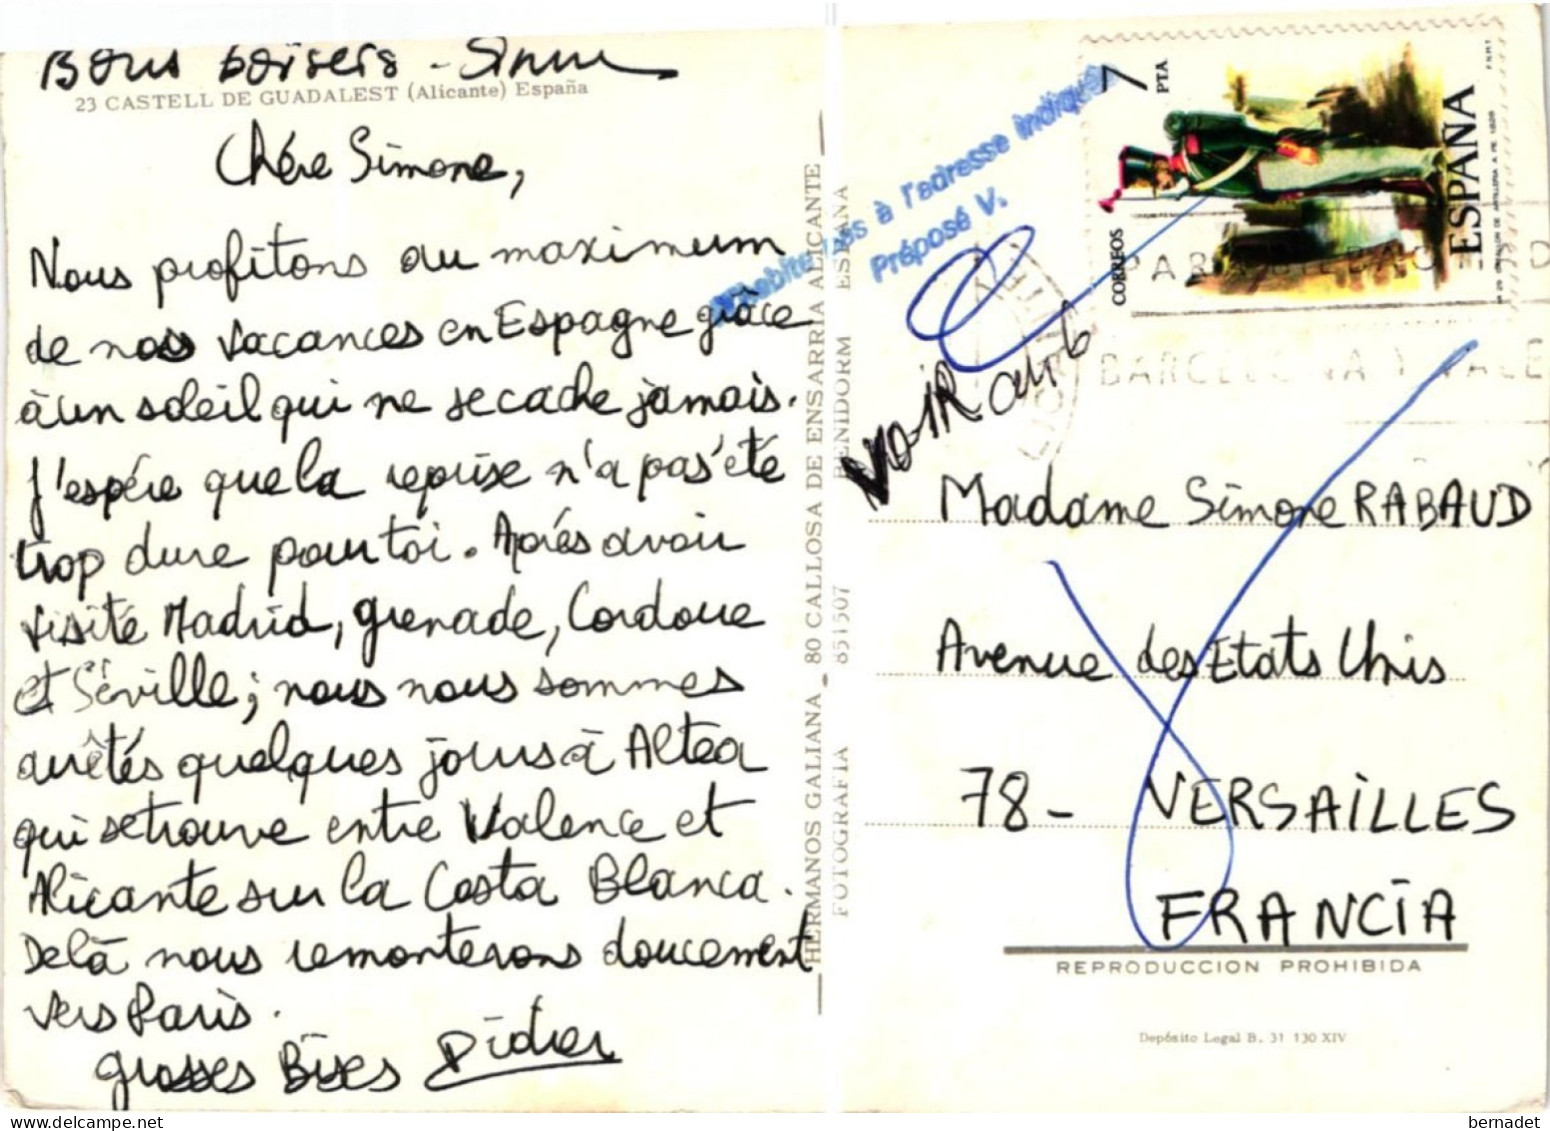 Bons baisers -
23 CASTELL DE GUADALEST (Alicante) España
Chére Simone,
Nous profitons au maximum
de nos vacances en Espagne grâce
à un soleil qui ne se cache jamais.
J'espére que la reprise n'a pas été
trop dure pour toi. Aprés avoir
visité Madrid, Grenade, Cordoue
et Séville; nous nous sommes
arrêtés quelques jours à Altea
qui se trouve entre Valence et
Alicante sur la Costa Blanca.
De là nous remonterons doucement
vers Paris.
grosses Bises Didier
HERMANOS GALIANA - 80 CALLOSA DE ENSARRIA ALICANTE
FOTOGRAFIA 851507 BENIDORM ESPAÑA
N'habite pas à l'adresse indiquée
Préposé V.
7 PTA
CORREOS
ESPAÑA
F.N.M.T.
BARCELONA Y VALE
Madame Simone RABAUD
Avenue des Etats Unis
78 - VERSAILLES
FRANCIA
REPRODUCCION PROHIBIDA
Depósito Legal B. 31 130 XIV
bernadet